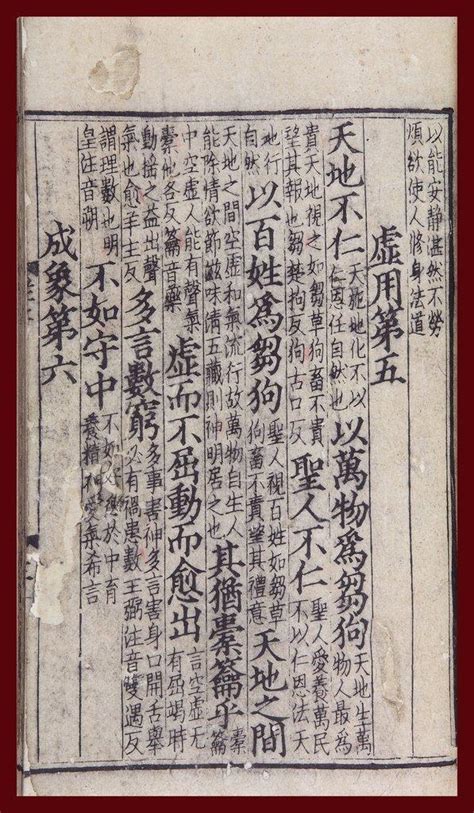 以能安静湛然不勞
煩欲使人修身法道
虛用第五
天地不仁
天施地化不以
仁恩任自然也
以萬物為芻狗
天地生萬
物人最為
貴天地視之如芻草狗畜不貴
望其報也芻楚拘反狗古口反
聖人不仁
聖人愛養萬民
不以仁恩法天
地行
自然
以百姓為芻狗
聖人視百姓如芻草
狗畜不貴望其禮意
天地之間
天地之間空虛和氣流行故萬物自生人
能除情欲節滋味清五藏則神明居之也
其猶橐籥乎
橐
籥
中空虛人能有聲氣
橐他各反籥音藥
虛而不屈動而愈出
言空虛无
有屈竭時
動搖之益出聲
氣也愈羊主反
多言數窮
多事害神多言害身口開舌舉
必有禍患數王弼注音雙遇反
謂理數也明
皇注音朔
不如守中
不如守於中育
養精神愛氣希言
成象第六